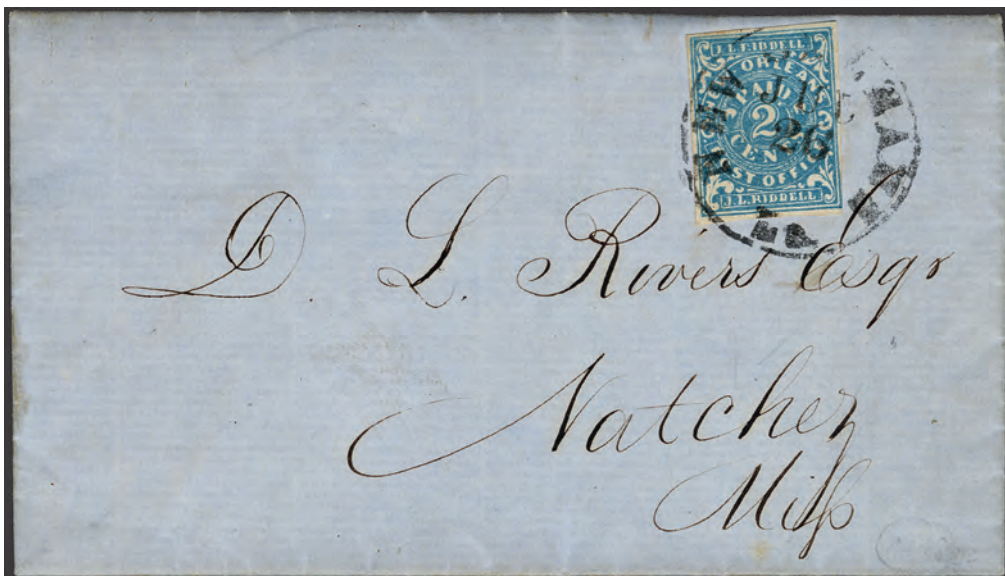 J.L.RIDDELL
ORLEANS
PAID
2
CENT
POST OFFIC
J.L.RIDDELL
26
D. L. Rivers Esqr
Natchez
Miss